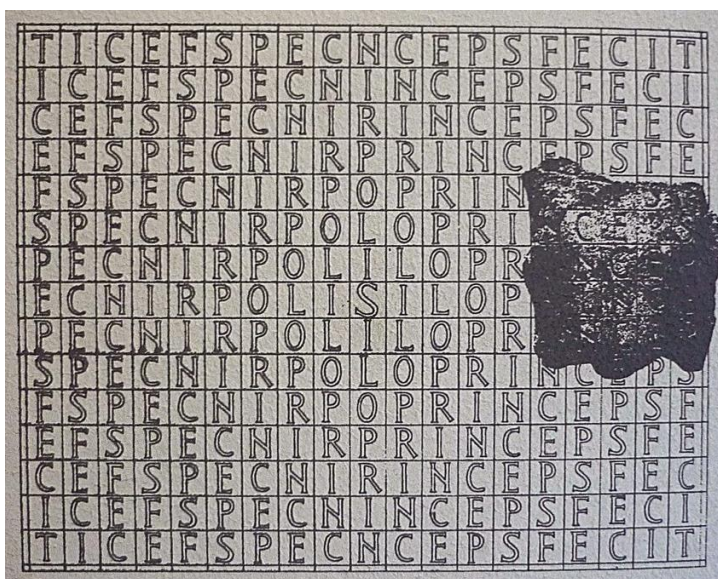 TICEFSPECNCEPSFECIT
ICEFSPECNINCEPSFECI
CEFSPECNIRINCEPSFEC
EFSPECNIRPRINCEPSFE
FSPECNIRPOPRIN
SPECNIRPOLOPRI CEPS
PECNIRPOLILOPR
ECNIRPOLISILOP
PECNIRPOLILOPR
SPECNIRPOLOPRINCEPS
FSPECNIRPOPRINCEPSF
EFSPECNIRPRINCEPSFE
CEFSPECNIRINCEPSFEC
ICEFSPECNINCEPSFECI
TICEFSPECNCEPSFECIT